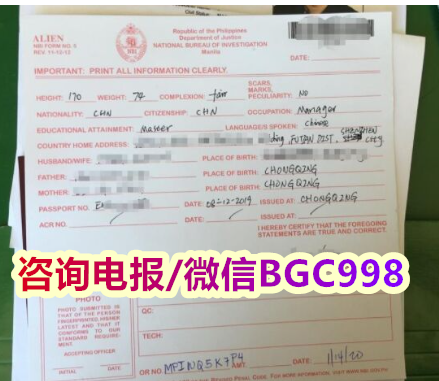 ALIEN
NBI FORM NO. 5
REV. 11-12-12
Republic of the Philippines
Department of Justice
NATIONAL BUREAU OF INVESTIGATION
Manila
DATE:
IMPORTANT: PRINT ALL INFORMATION CLEARLY
HEIGHT: 170 WEIGHT: 74 COMPLEXION: fair SCARS, MARKS, PECULIARITY: NO
NATIONALITY: CHN CITIZENSHIP: CHN OCCUPATION: Manager
EDUCATIONAL ATTAINMENT: Master LANGUAGE/S SPOKEN: Chinese
COUNTRY HOME ADDRESS: FUTIAN DIST. SHENZHEN City
HUSBAND/WIFE: PLACE OF BIRTH:
FATHER: PLACE OF BIRTH: CHONGQING
MOTHER: PLACE OF BIRTH: CHONGQING
PASSPORT NO. E DATE: 08-12-2019 ISSUED AT: CHONGQING
ACR NO. DATE: ISSUED AT:
I HEREBY CERTIFY THAT THE FOREGOING
STATEMENTS ARE TRUE AND CORRECT.
咨询电报/微信BGC998
PHOTO
PHOTO SUBMITTED IS
THAT OF THE PERSON
FINGERPRINTED HIS/HER
LATEST AND THAT IT
CONFORMS TO OUR
STANDARD REQUIRE-
MENT.
ACCEPTING OFFICER
INITIAL DATE
QC:
TECH:
OR NO. MPINQ5K7P4 AMT. DATE: 1/14/20